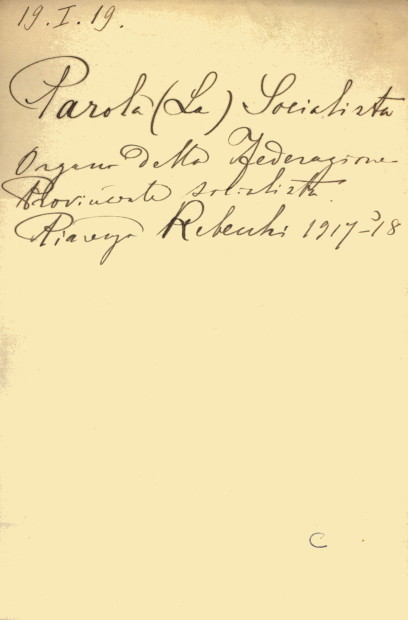 19.I.19.
Parola (La) Socialista
Organo della Federazione
Provinciale socialista.
Piacenza Rebecchi 1917-18
C